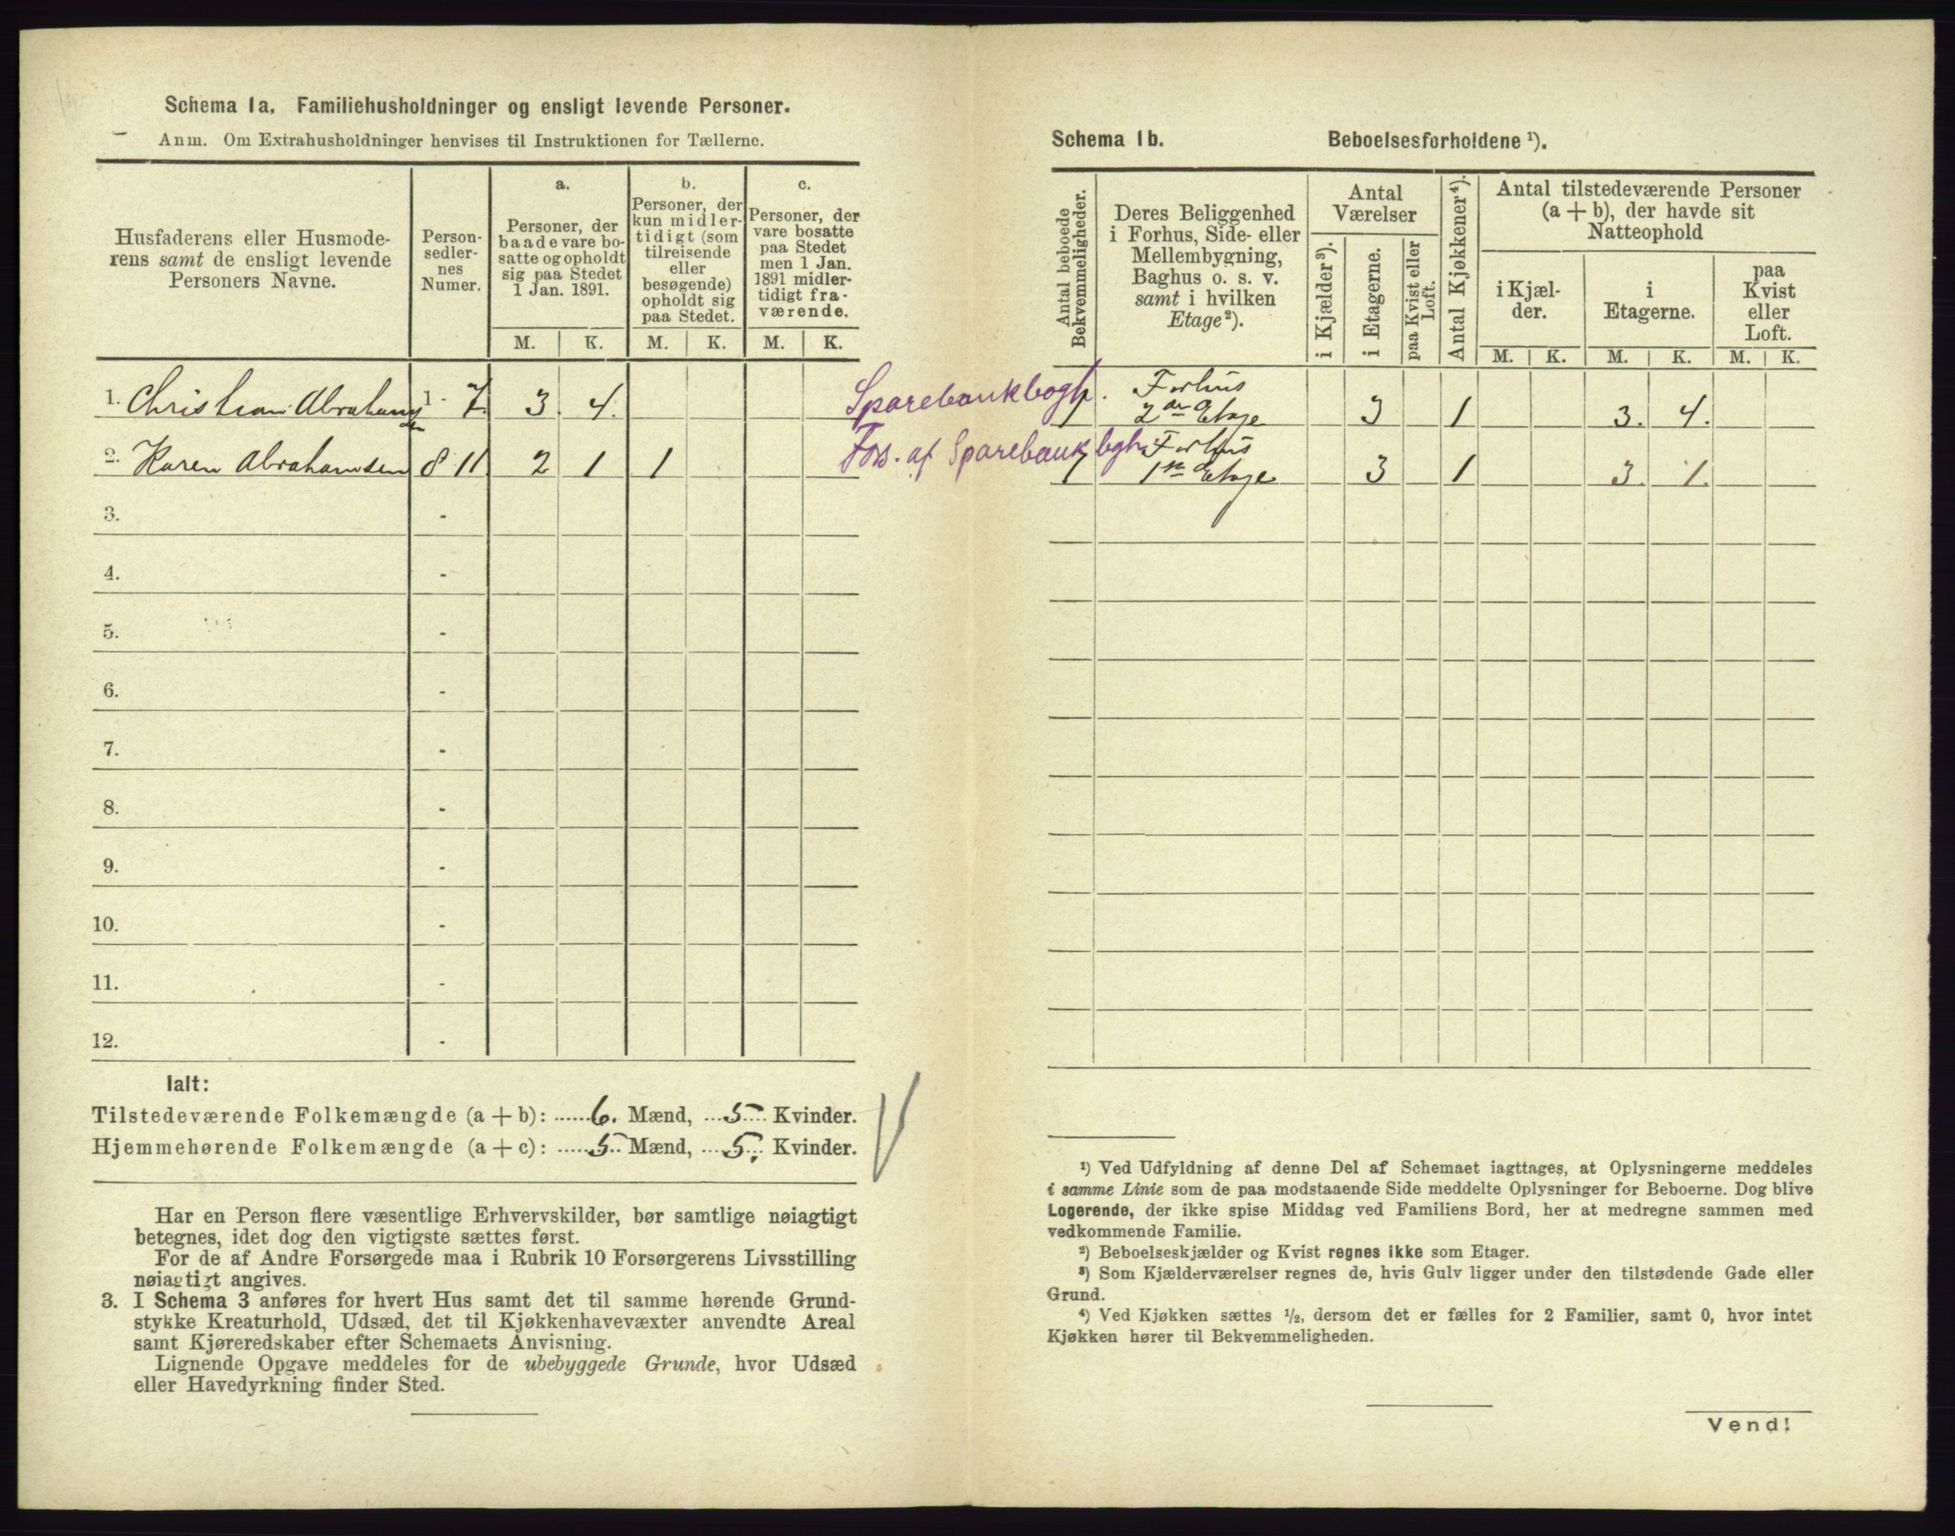 Schema 1a. Familiehusholdninger og ensligt levende Personer.
Anm. Om Extrahusholdninger henvises til Instruktionen for Tællerne.
Husfaderens eller Husmoderens samt de ensligt levende Personers Navne.
Person-
sedler-
nes
Numer.
a.
Personer, der
baade vare bo-
satte og opholdt
sig paa Stedet
1 Jan. 1891.
b.
Personer, der
kun midler-
tidigt (som
tilreisende
eller
besøgende)
opholdt sig
paa Stedet.
c.
Personer, der
vare bosatte
paa Stedet
men 1 Jan.
1891 midler-
tidigt fra-
værende.
M. K. M. K. M. K.
1. Christian Abrahamsen 1 - 7. 3. 4.
2. Karen Abrahamsen 8 11 2 1 1
3. -
4. -
5. -
6. -
7. -
8. -
9. -
10. -
11. -
12. -
Ialt:
Tilstedeværende Folkemængde (a + b): 6. Mænd, 5 Kvinder.
Hjemmehørende Folkemængde (a + c): 5 Mænd, 5. Kvinder.
Har en Person flere væsentlige Erhvervskilder, bør samtlige nøiagtigt
betegnes, idet dog den vigtigste sættes først.
For de af Andre Forsørgede maa i Rubrik 10 Forsørgerens Livsstilling
nøiagtigt angives.
3. I Schema 3 anføres for hvert Hus samt det til samme hørende Grund-
stykke Kreaturhold, Udsæd, det til Kjøkkenhavevæxter anvendte Areal
samt Kjøreredskaber efter Schemaets Anvisning.
Lignende Opgave meddeles for de ubebyggede Grunde, hvor Udsæd
eller Havedyrkning finder Sted.
Schema 1b. Beboelsesforholdene ¹).
Antal beboede
Bekvemmeligheder.
Deres Beliggenhed
i Forhus, Side- eller
Mellembygning,
Baghus o. s. v.
samt i hvilken
Etage²).
Antal
Værelser
i Kjælder³).
i Etagerne.
paa Kvist eller
Loft.
Antal Kjøkkener⁴).
Antal tilstedeværende Personer
(a + b), der havde sit
Natteophold
i Kjæl-
der.
i
Etagerne.
paa
Kvist
eller
Loft.
M. K. M. K. M. K.
Sparebankbogh.
1 Forhus
2den Etage 3 1 3. 4.
Fors. af Sparebankbgh.
1 Forhus
1ste Etage 3 1 3. 1.
¹) Ved Udfyldning af denne Del af Schemaet iagttages, at Oplysningerne meddeles
i samme Linie som de paa modstaaende Side meddelte Oplysninger for Beboerne. Dog blive
Logerende, der ikke spise Middag ved Familiens Bord, her at medregne sammen med
vedkommende Familie.
²) Beboelseskjælder og Kvist regnes ikke som Etager.
³) Som Kjælderværelser regnes de, hvis Gulv ligger under den tilstødende Gade eller
Grund.
⁴) Ved Kjøkken sættes ½, dersom det er fælles for 2 Familier, samt 0, hvor intet
Kjøkken hører til Bekvemmeligheden.
Vend!